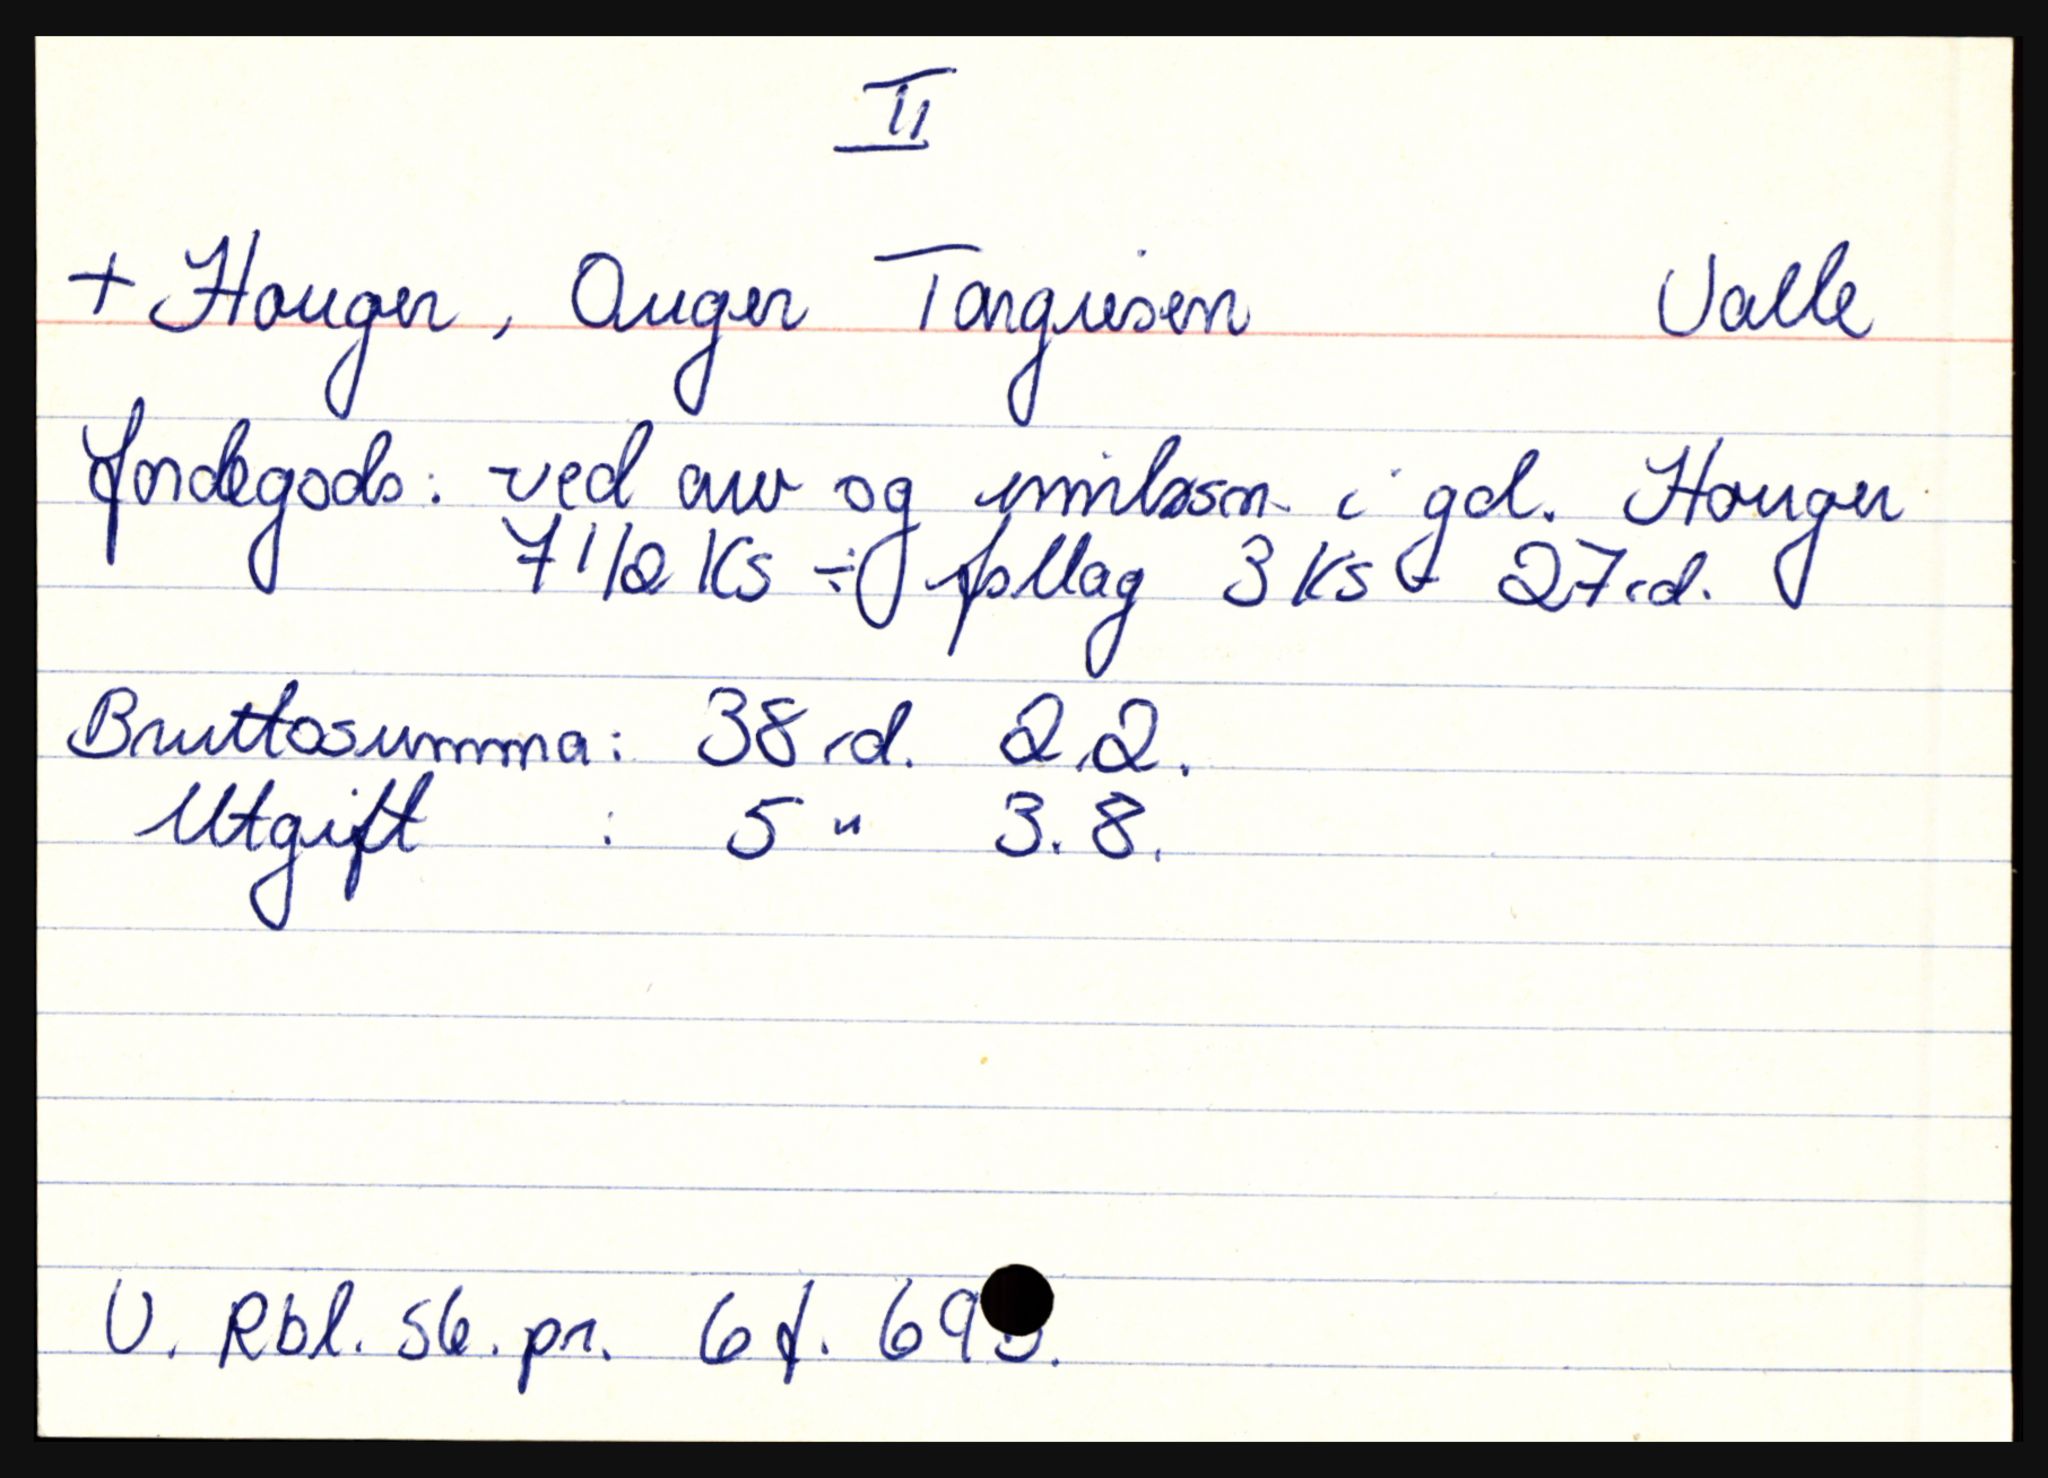 II
+ Houger, Auger Torgiesen Valle
Jordegods: ved arv og innløsn. i gd. Houger
7 1/2 Ks ÷ følllag 3 Ks - 27 rd.
Bruttosumma: 38 rd. 2.2.
Utgift : 5 " 3. 8.
V. Rbl. S6. pr. 6 f.